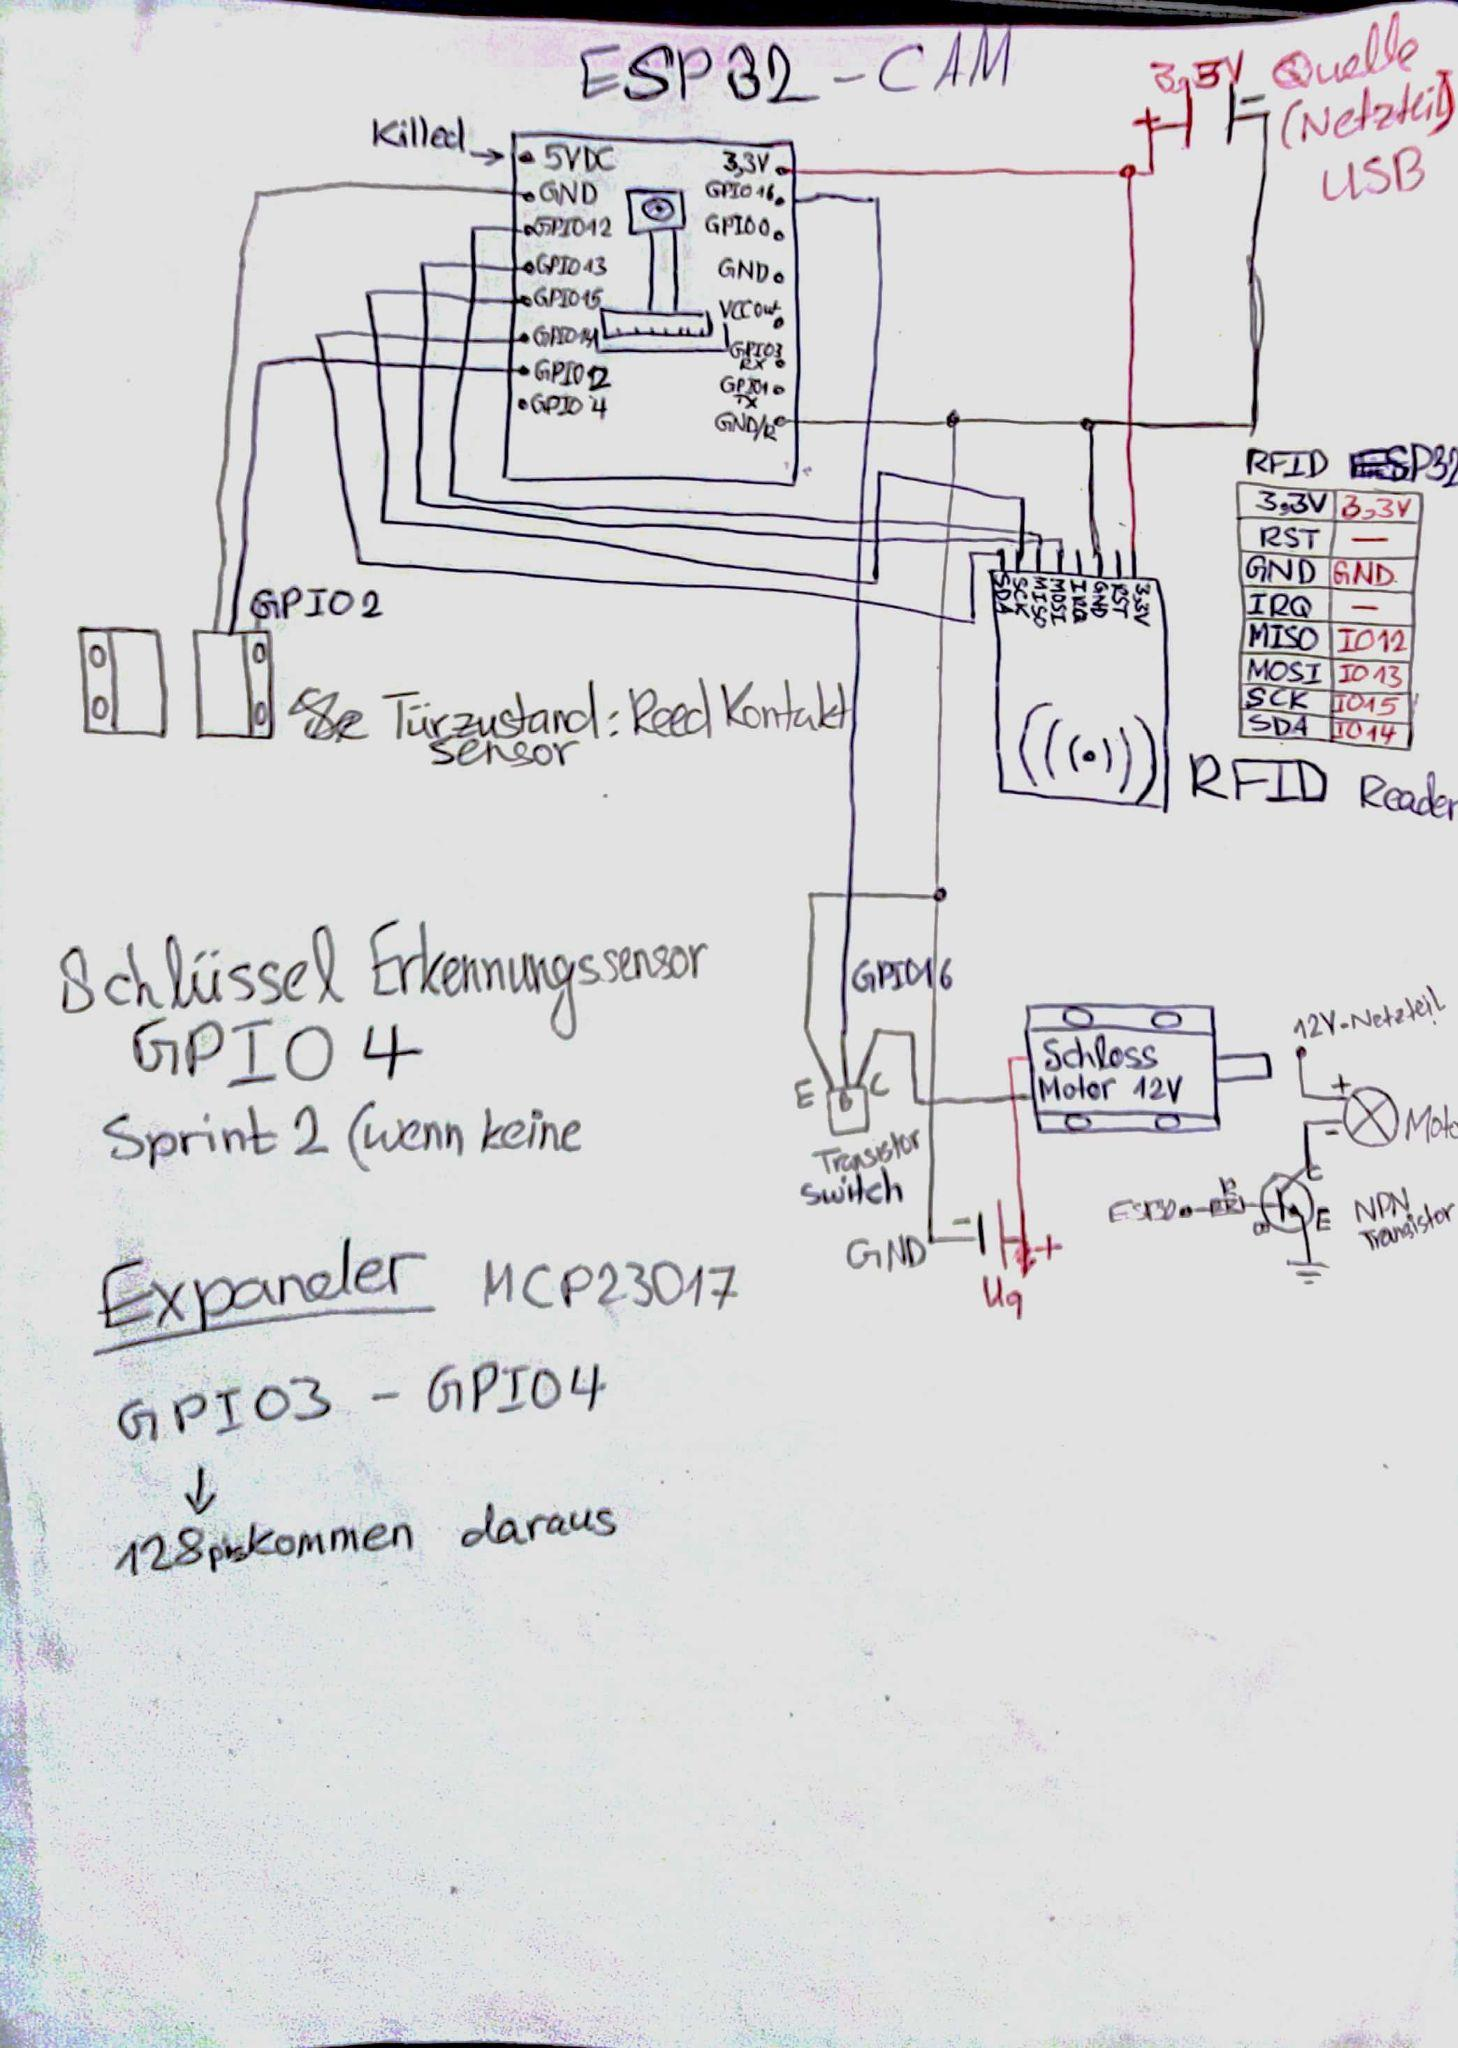 ESP32 - CAM
3,3V Quelle
(Netzteil)
USB
+
-
Killed
5VDC
GND
GPIO12
GPIO13
GPIO15
GPIO14
GPIO2
GPIO4
3,3V
GPIO16
GPIO0
GND
VCCout
GPIO3
RX
GPIO1
TX
GND/R
RFID ESP32
3,3V 3,3V
RST —
GND GND
IRQ —
MISO IO12
MOSI IO13
SCK IO15
SDA IO14
SDA
SCK
MISO
MOSI
IRQ
GND
RST
3,3V
RFID Reader
GPIO2
Türzustand: Reed Kontakt
sensor
Schlüssel Erkennungssensor
GPIO4
Sprint 2 (wenn keine
GPIO16
E
B
C
Transistor
switch
Schloss
Motor 12V
GND
-
+
Uq
12V-Netzteil
+
-
Moto
C
E
NPN
Transistor
ESP32
Expander MCP23017
GPIO3 - GPIO4
↓
128pins kommen daraus